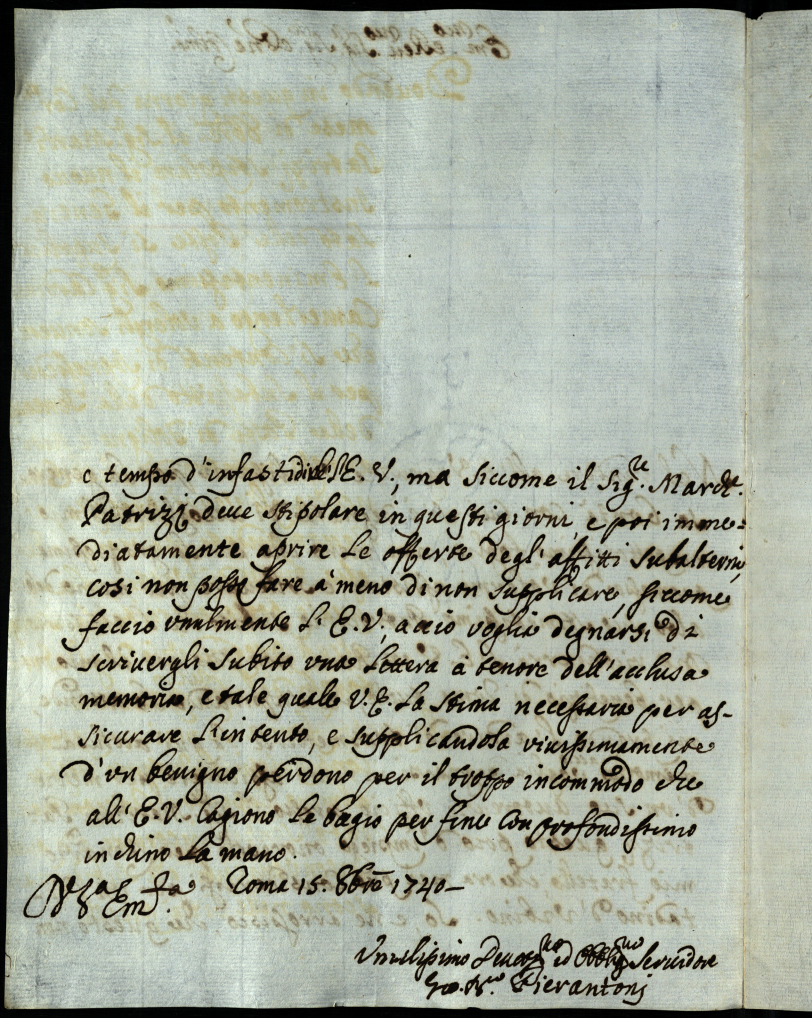 e tempo d'infastidire l'E. V., ma siccome il Sig.re March.e
Patrizj deve stipolare in questi giorni, e poi imme=
diatamente aprire le offerte degl'affitti subalterni,
così non posso fare à meno di non supplicare, siccome
faccio umilmente l'E. V., acciò voglia degnarsi di
scrivergli subito una lettera à tenore dell'acclusa
memoria, e tale quale V. E. la stima necessaria per as-
sicurare l'intento, e supplicandola vivissimamente
d'un benigno perdono per il troppo incommodo che
all'E. V. cagiono le bagio per fine con profondissimo
inchino la mano.
Roma 15. 8bre 1740-
Umilissimo Devot.mo ed Obblig.mo Servidore
Pierantonj